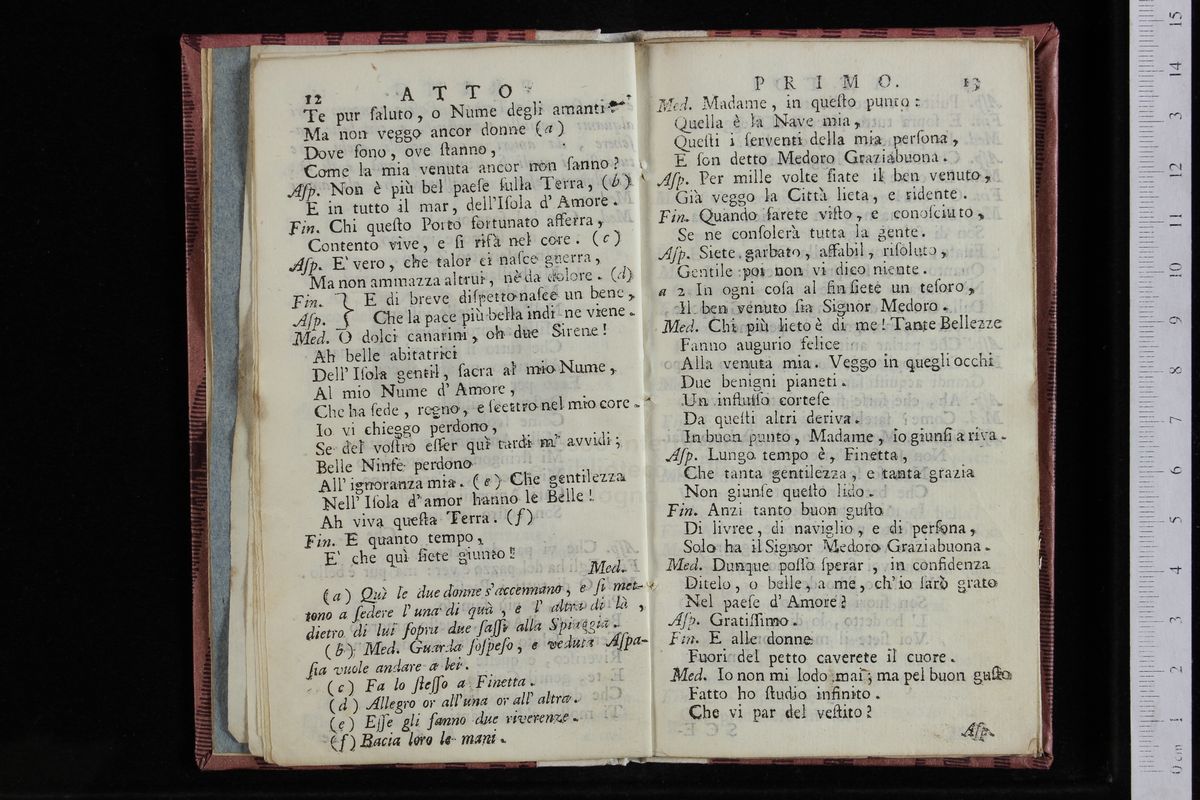 12 ATTO
Te pur ſaluto, o Nume degli amanti
Ma non veggo ancor donne (a)
Dove ſono, ove ſtanno,
Come la mia venuta ancor non ſanno?
Aſp. Non è più bel paeſe ſulla Terra, (b)
E in tutto il mar, dell'Iſola d' Amore.
Fin. Chi queſto Porto fortunato afferra,
Contento vive, e ſi riſà nel core. (c)
Aſp. E' vero, che talor ci naſce guerra,
Ma non ammazza altrui, nè da dolore. (d)
Fin. } E di breve diſpetto naſce un bene,
Aſp. } Che la pace più bella indi ne viene.
Med. O dolci canarini, oh due Sirene!
Ah belle abitatrici
Dell' Iſola gentil, ſacra al mio Nume,
Al mio Nume d' Amore,
Che ha ſede, regno, e ſcettro nel mio core.
Io vi chieggo perdono,
Se del voſtro eſſer quì tardi m' avvidi;
Belle Ninfe perdono
All' ignoranza mia. (e) Che gentilezza
Nell' Iſola d'amor hanno le Belle!
Ah viva queſta Terra. (f)
Fin. E quanto tempo,
E' che quì ſiete giunto?
Med.
(a) Quì le due donne s'accennano, e ſi met-
tono a ſedere l' una di quà, e l' altra di là,
dietro di lui ſopra due ſaſſi alla Spiaggia.
(b) Med. Guarda ſoſpeſo, e veduta Aſpa-
ſia vuole andare a lei.
(c) Fa lo ſteſſo a Finetta.
(d) Allegro or all'una or all' altra.
(e) Eſſe gli fanno due riverenze.
(f) Bacia loro le mani.
PRIMO. 13
Med. Madame, in queſto punto:
Quella è la Nave mia,
Queſti i ſerventi della mia perſona,
E ſon detto Medoro Graziabuona.
Aſp. Per mille volte ſiate il ben venuto,
Già veggo la Città lieta, e ridente.
Fin. Quando ſarete viſto, e conoſciuto,
Se ne conſolerà tutta la gente.
Aſp. Siete garbato, affabil, riſoluto,
Gentile poi non vi dico niente.
a 2 In ogni coſa al fin ſiete un teſoro,
Il ben venuto ſia Signor Medoro.
Med. Chi più lieto è di me! Tante Bellezze
Fanno augurio felice
Alla venuta mia. Veggo in quegli occhi
Due benigni pianeti.
Un influſſo corteſe
Da queſti altri deriva.
In buon punto, Madame, io giunſi a riva.
Aſp. Lungo tempo è, Finetta,
Che tanta gentilezza, e tanta grazia
Non giunſe queſto lido.
Fin. Anzi tanto buon guſto
Di livree, di naviglio, e di perſona,
Solo ha il Signor Medoro Graziabuona.
Med. Dunque poſſo ſperar, in confidenza
Ditelo, o belle, a me, ch'io ſarò grato
Nel paeſe d' Amore?
Aſp. Gratiſſimo.
Fin. E alle donne
Fuori del petto caverete il cuore.
Med. Io non mi lodo mai, ma pel buon guſto
Fatto ho ſtudio infinito.
Che vi par del veſtito?
Aſp.